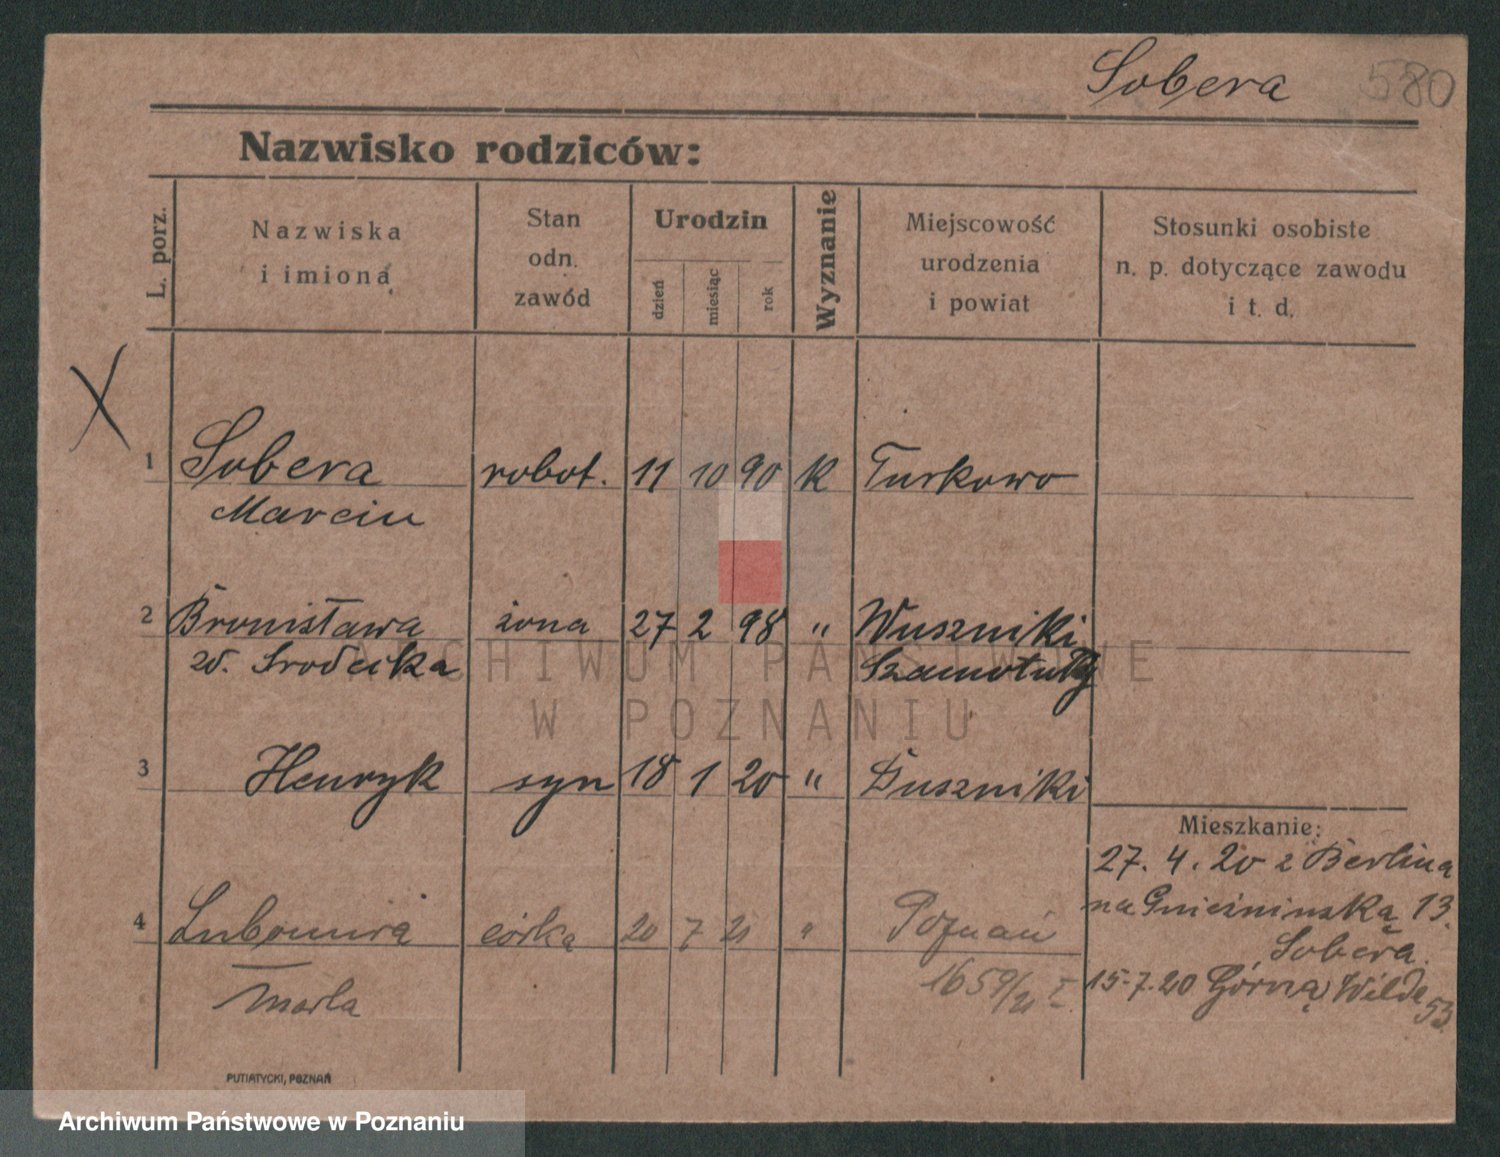 Sobera 580
Nazwisko rodziców:
L. porz.
Nazwiska
i imiona
Stan
odn.
zawód
Urodzin
dzień
miesiąc
rok
Wyznanie
Miejscowość
urodzenia
i powiat
Stosunki osobiste
n. p. dotyczące zawodu
i t. d.
X
1 Sobera robot. 11 10 90 k Turkowo
Marcin
2 Bronisława żona 27 2 98 " Wuszniki
zd. Srodecka Szamotuły
3 Henryk syn 18 1 20 " Duszniki
Mieszkanie:
27. 4. 20 z Berlina
na Gnieźnińską 13.
Sobera.
4 Lubomira córka 20 7 21 " Poznań
15-7-20 Górną Wildę
53.
1659/21 I.
zmarła
PUTIATYCKI, POZNAŃ
ARCHIWUM PAŃSTWOWE
W POZNANIU
Archiwum Państwowe w Poznaniu